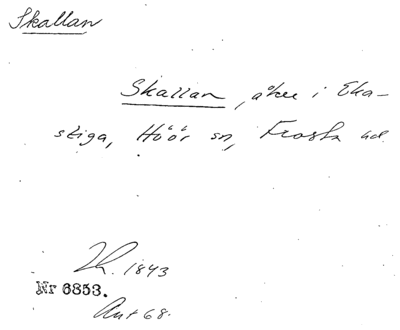 Skallan
Skallan, åker i Eka-
stiga, Höör sn, Frosta hd.
Lh. 1843
Nr 6853.
Ant 68.